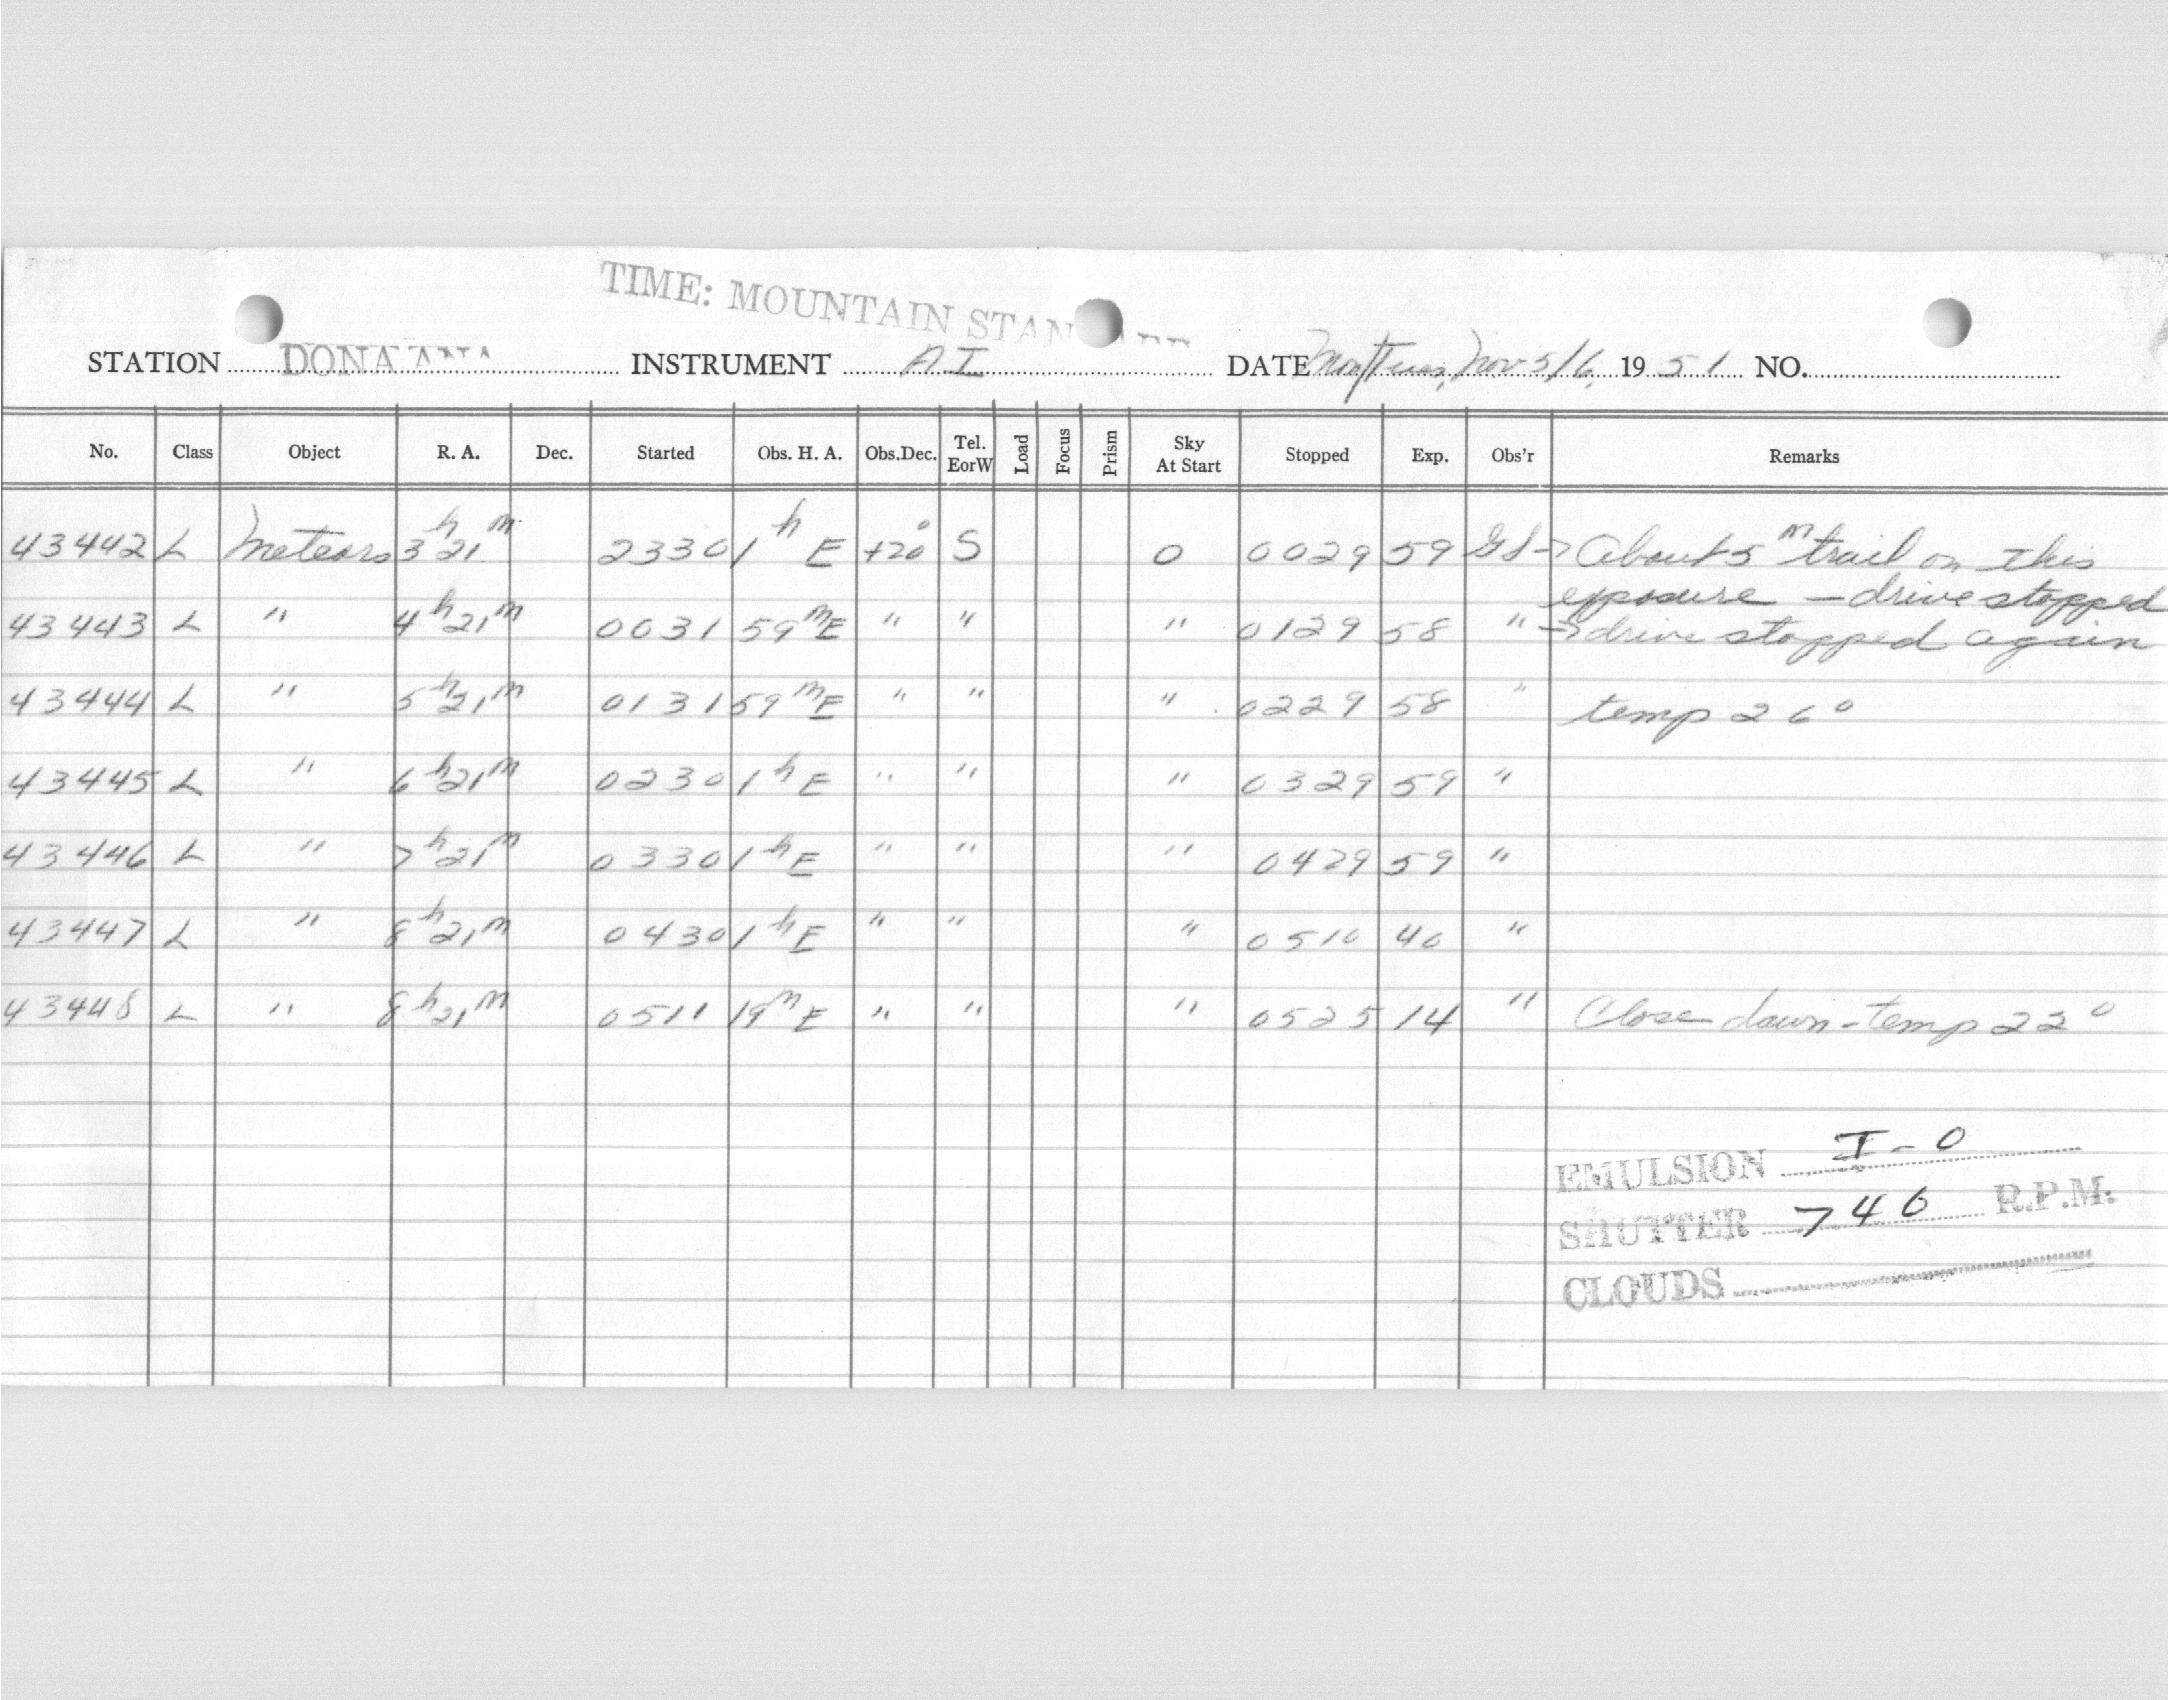 TIME: MOUNTAIN STANDARD
STATION DONA ANA INSTRUMENT AI DATE Mon/Tues, Nov 5/6, 1951 NO.
No. Class Object R. A. Dec. Started Obs. H. A. Obs.Dec. Tel. EorW Load Focus Prism Sky At Start Stopped Exp. Obs'r Remarks
43442 L Meteors 3h 21m 2330 1h E +20° S 0 0029 59 GS → About 5m trail on this
exposure – drive stopped
43443 L " 4h 21m 0031 59m E " " " 0129 58 " → drive stopped again
43444 L " 5h 21m 0131 59m E " " " 0229 58 " temp 26°
43445 L " 6h 21m 0230 1h E " " " 0329 59 "
43446 L " 7h 21m 0330 1h E " " " 0429 59 "
43447 L " 8h 21m 0430 1h E " " " 0510 40 "
43448 L " 8h 21m 0511 19m E " " " 0525 14 " Close down - temp 22°
EMULSION I - 0
SHUTTER 740 R.P.M.
CLOUDS